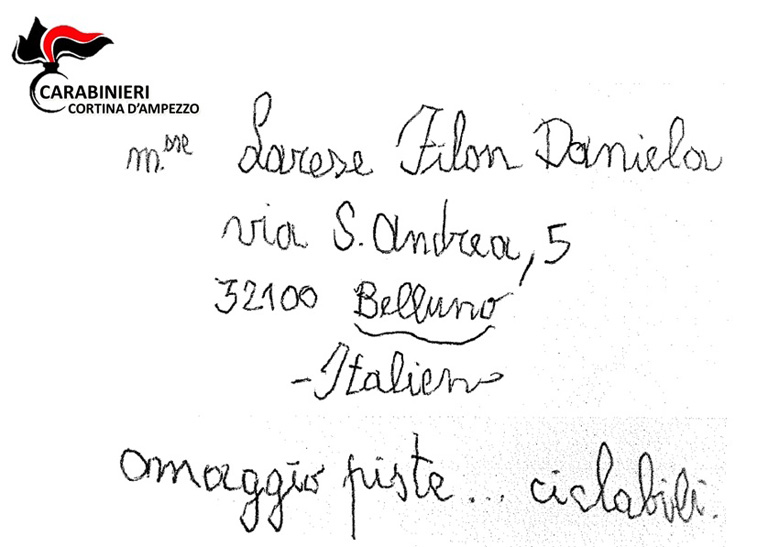 CARABINIERI
CORTINA D'AMPEZZO
m.sse Larese Filon Daniela
via S. Andrea, 5
32100 Belluno
- Italien -
omaggio piste... ciclabili.